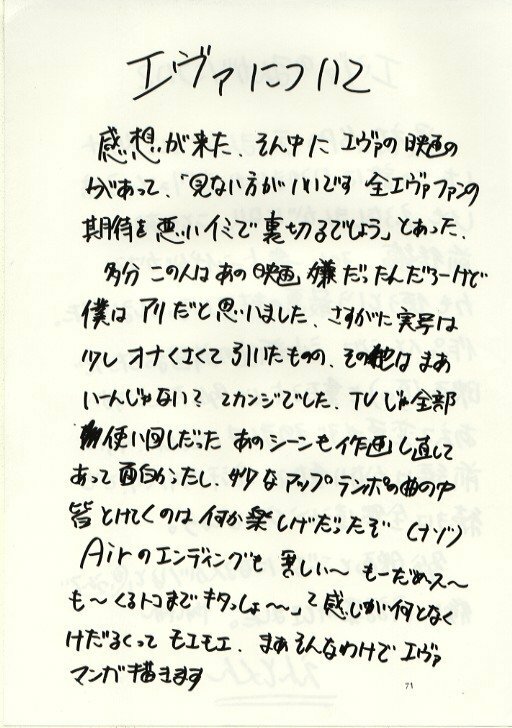 エヴァについて
感想が来た、そん中にエヴァの映画の
があって、「見ない方がいいです 全エヴァファンの
期待を悪いイミで裏切るでしょう」とあった。
多分この人はあの映画嫌だったんだろーけど
僕はアリだと思いました。さすがに実写は
少しオナくさくて引いたものの、その他はまあ
いーんじゃない?てカンジでした、TVじゃ全部
使い回しだったあのシーンも作画し直して
あって面白かったし、妙なアップテンポの曲の中
皆とけてくのは何か楽しげだったぞ(ナゾ)
Airのエンディングも 苦しい〜 もーだめッス〜
も〜くるトコまでキタっしょ〜〜」て感じが何となく
けだるくってモエモエ、まあそんなわけでエヴァ
マンガ描きます
71